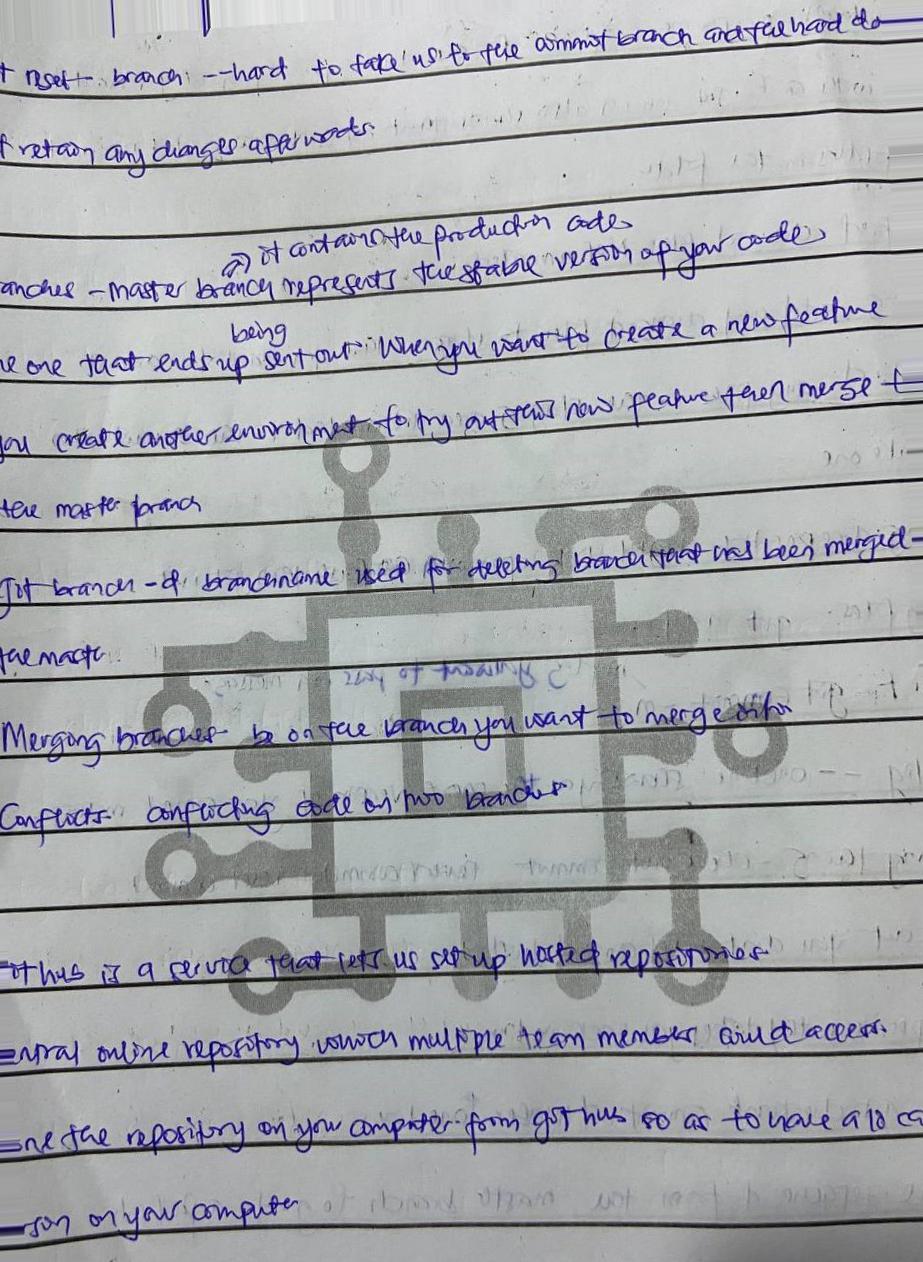 t reset branch --hard to take us to the commit branch and the hard do
t retain any changes afterwards.
it contains the production code
anches - master branch represents the stable version of your code
being
he one that ends up sent out. When you want to create a new feature
you create another environment to try out this new feature then merge t
the master branch
Git branch -d branchname used for deleting branch that has been merged
the master
Merging branches be on the branch you want to merge
Conflicts conflicting code on two branches
ithub is a service that lets us set up hosted repositories
entral online repository which multiple team members could access.
one the repository on your computer from github so as to have a loca
rsion on your computer